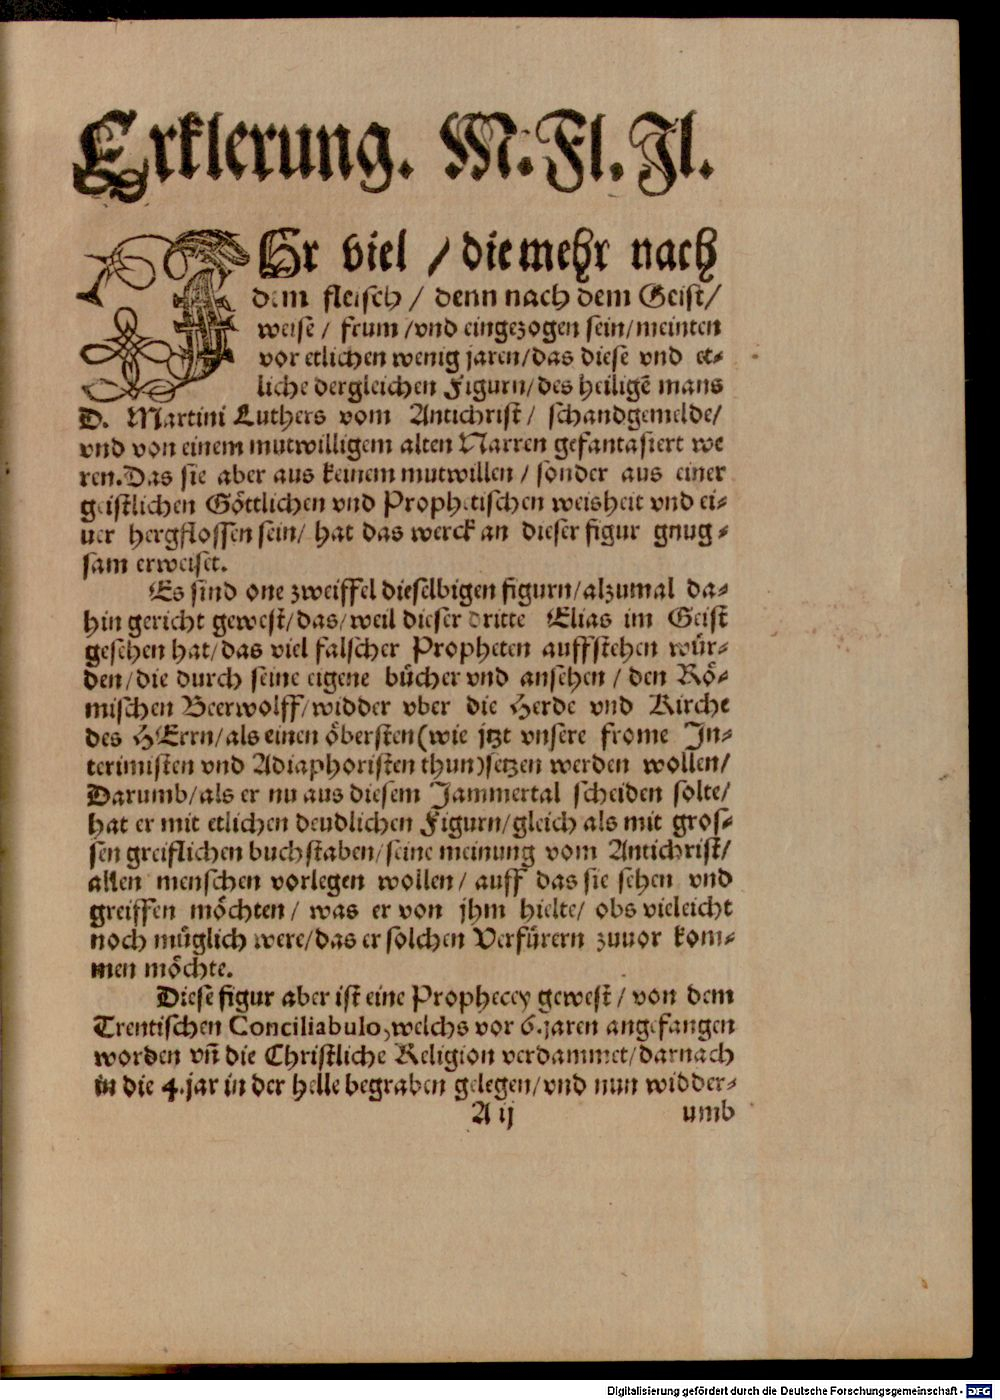 Erklerung. M. Fl. Jl.
JHr viel / die mehr nach
dem fleisch / denn nach dem Geist/
weise / frum /vnd eingezogen sein/meinten
vor etlichen wenig jaren/das diese vnd et-
liche dergleichen Figurn/des heiligẽ mans
D. Martini Luthers vom Antichrist/ schandgemelde/
vnd von einem mutwilligem alten Narren gefantasiert we
ren.Das sie aber aus keinem mutwillen / sonder aus einer
geistlichen Göttlichen vnd Prophetischen weisheit vnd ei-
uer hergflossen sein/ hat das werck an dieser figur gnug-
sam erweiset.
Es sind one zweiffel dieselbigen figurn/alzumal da-
hin gericht gewest/das/weil dieser dritte Elias im Geist
gesehen hat/das viel falscher Propheten auffstehen wür-
den/die durch seine eigene bücher vnd ansehen / den Rö-
mischen Beerwolff/widder vber die Herde vnd Kirche
des HErrn/als einen öbersten(wie jtzt vnsere frome In-
terimisten vnd Adiaphoristen thun)setzen werden wollen/
Darumb/als er nu aus diesem Jammertal scheiden solte/
hat er mit etlichen deudlichen Figurn/gleich als mit gros-
sen greiflichen buchstaben/seine meinung vom Antichrist/
allen menschen vorlegen wollen/ auff das sie sehen vnd
greiffen möchten/ was er von jhm hielte/ obs vieleicht
noch müglich were/das er solchen Verfürern zuuor kom-
men möchte.
Diese figur aber ist eine Prophecey gewest/ von dem
Trentischen Conciliabulo,welchs vor 6.jaren angefangen
worden vñ die Christliche Religion verdammet/darnach
in die 4.jar in der helle begraben gelegen/vnd nun widder-
A ij umb
Digitalisierung gefördert durch die Deutsche Forschungsgemeinschaft - DFG